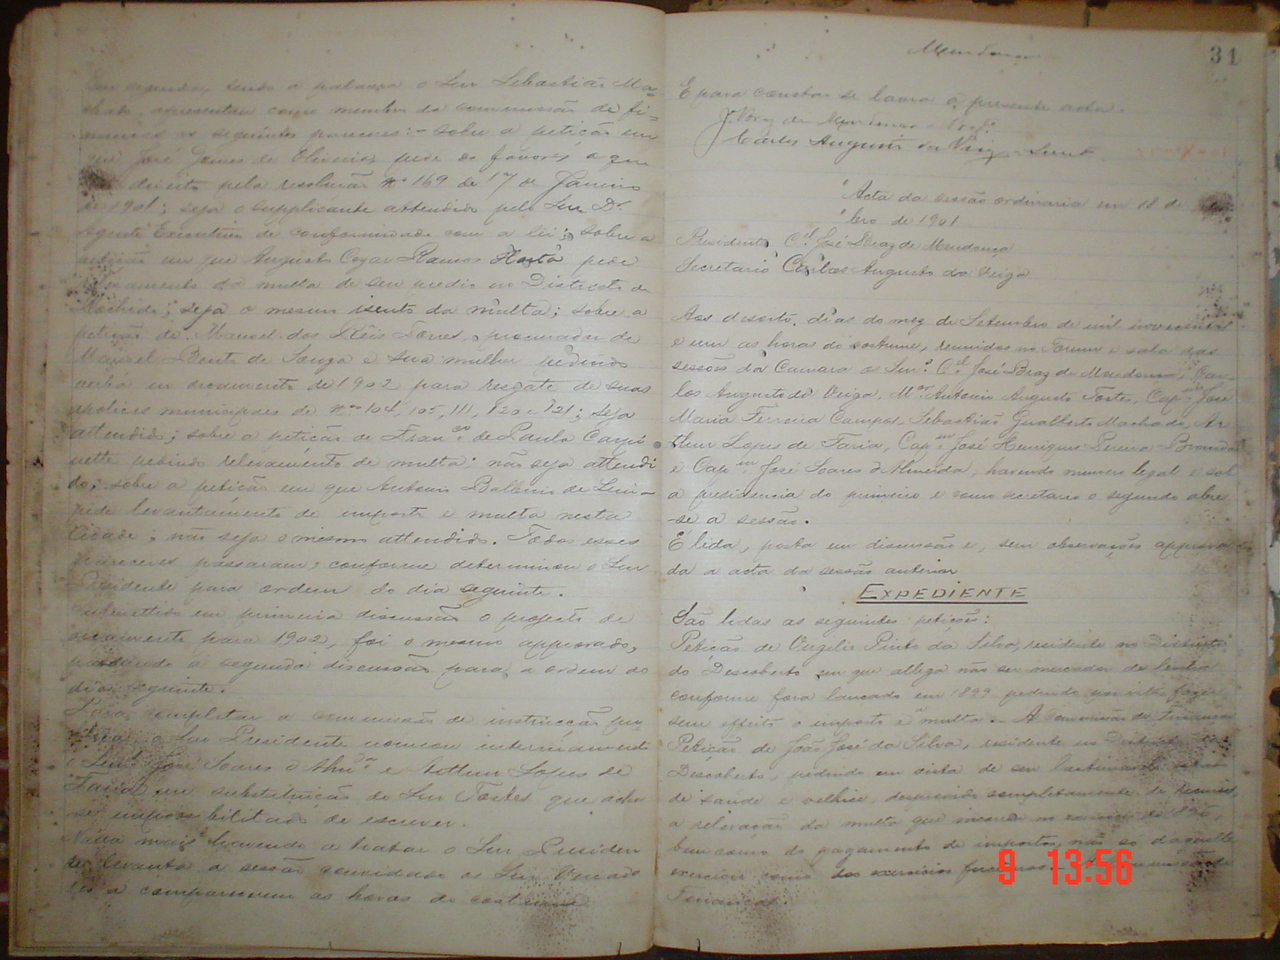 Em seguida, tendo a palavra o Snr Sebastião Ma-
chado, apresentou como membro da commissão de fi-
nanças os seguintes pareceres: - sobre a petição em
que José Gomes de Oliveira, pede os favores a que
direito pela resolução nº 169 de 17 de Janeiro
de 1901; seja o supplicante attendido pelo Snr Dr.
Agente Executivo de conformidade com a lei; sobre a
petição em que Augusto Cezar Ramos Horta pede
da multa de seu predio no Districto de
; seja o mesmo isento da multa; sobre a
petição de Manoel dos Reis Torres, procurador de
Manoel Bento de Souza e sua mulher pedindo
verba no orçamento de 1902 para resgate de suas
apolices municipaes de nos 104, 105, 111, 120 e 121; seja
attendido; sobre a petição de Franco de Paula
pedindo relevamento de multa; não seja attendi
do; sobre a petição em que Antonio Balbino de
pede levantamento de imposto e multa nesta
Cidade; não seja o mesmo attendido. Todos esses
pareceres passaram, conforme determinou o Snr
Presidente para ordem do dia seguinte.
Submettido em primeira discussão o projecto de
orçamento para 1902, foi o mesmo approvado,
passando a segunda discussão para a ordem do
dia seguinte.
Para completar a commissão de instrucção pu-
blica o Snr Presidente nomeou interinamente
José Soares d'Almda e Arthur Lopes de
Faria em substituição do Snr Fortes que acha
se impossibilitado de escrever.
Nada mais havendo a tratar o Snr Presiden
te levanta a sessão convidado os Snr Vereado
res a comparecerem as horas do costume
Mendonça
31
E para constar se lavra a presente acta.
J. Braz de Mendonça - Presde
Carlos Augusto da Veiga - Secreto
Acta da sessão ordinaria em 18 de
bro de 1901
Presidente Cel José Braz de Mendonça
Secretario Carlos Augusto da Veiga
Aos desoito dias do mez de Setembro de mil novecentos
e um as horas do costume, reunidos no Forum e sala das
sessões da Camara os Snrs Cel José Braz de Mendonça, Car-
los Augusto da Veiga, Antonio Augusto Fortes, Capm José
Maria Ferreira Campos, Sebastião Gualberto Machado, Ar
thur Lopes de Faria, Capm José Henriques Pereira Brandão
e Capm José Soares d'Almeida, havendo numero legal e sob
a presidencia do primeiro e como secretario o segundo abre
-se a sessão.
É lida, posta em discussão e, sem observações approva
da a acta da sessão anterior
EXPEDIENTE
São lidas as seguintes petições:
Petição de Virgilio Pinto da Silva, residente no Districto
do Descoberto em que allega não ser mercador de
conforme fora lançado em 1899 pedindo por isto fazer
sem effeito o imposto e multa. - A Commissão de Finanças
Petição de João José da Silva, residente no Districto do
Descoberto, pedindo em vista de seu lastimavel estado
de saude e velhice, desprovido completamente de recursos,
a relevação da multa que incorreu no exercicio de
bem como do pagamento de impostos, não só d'aquelle
exercicio como dos exercicios
Finanças.
9 13:56